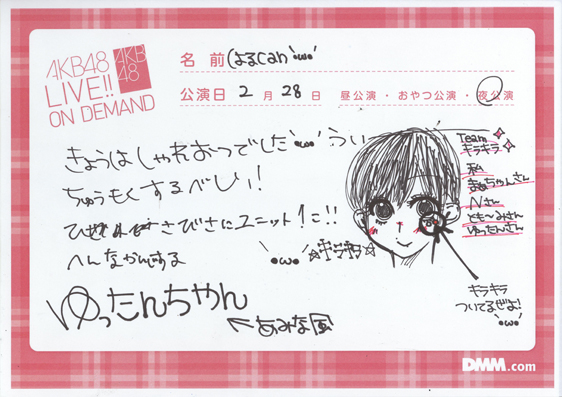 AKB48
LIVE!!
ON DEMAND
AKB
48
名 前 はるcan 'ω'
公演日 2 月 28 日 昼公演・おやつ公演・夜公演
きょうはしゃれおつでした 'ω' うぃー
ちゅうもくするべしぃ!
さびさにユニット1こ!!
へんなかんじする 'ω'
☆キラキラ☆
ゆったんちゃん
←あみな風
Team
キラキラ
私
まぁちゃんさん
Nさん
とも〜みさん
ゆったんさん
キラキラ
ついてるぜよ!
'ω'
DMM.com